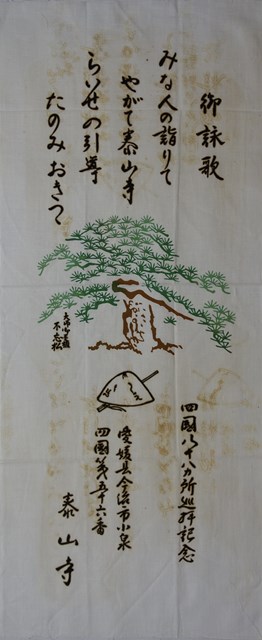 御詠歌
みな人の詣りて
やがて泰山寺
らいせの引導
たのみおきつゝ
不忘松
四国八十八カ所巡拝記念
愛媛県今治市小泉
四国第五十六番
泰山寺